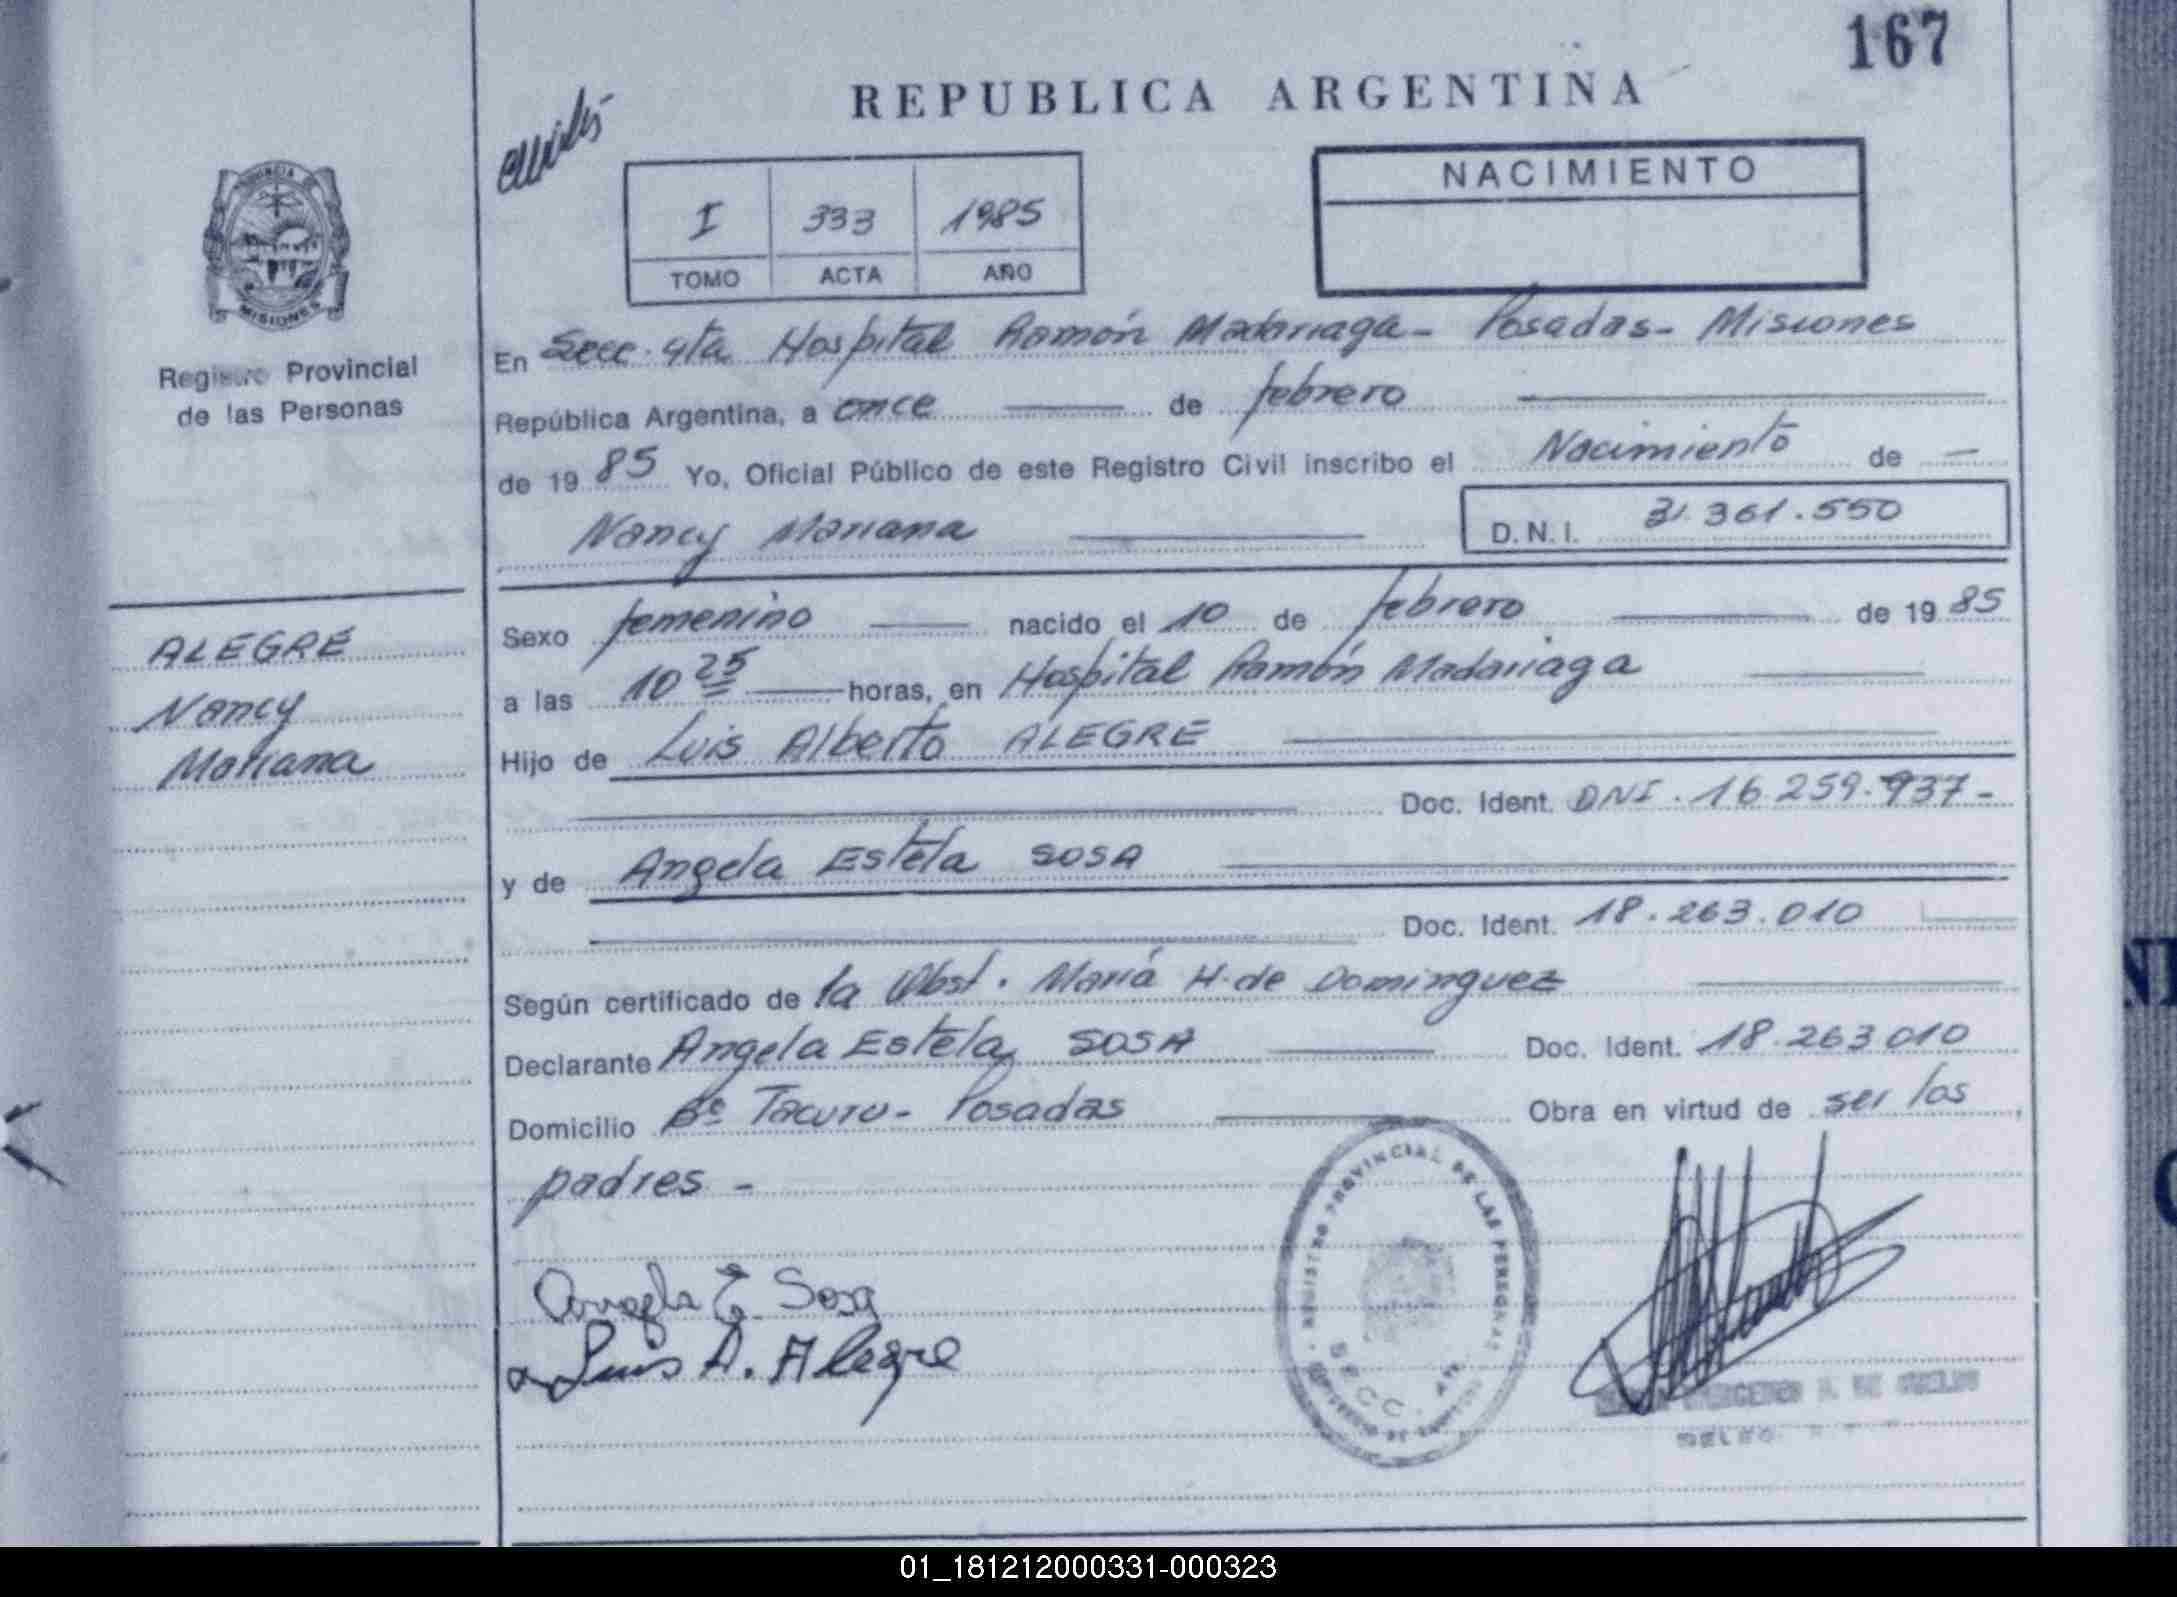 167
REPUBLICA ARGENTINA
I 333 1985
TOMO ACTA AÑO
NACIMIENTO
PROVINCIA DE
MISIONES
Registro Provincial
de las Personas
En Secc. 4ta Hospital Ramón Madariaga - Posadas - Misiones
República Argentina, a once de febrero
de 19 85 Yo, Oficial Público de este Registro Civil inscribo el Nacimiento de -
Nancy Mariana
D. N. I. 31.361.550
ALEGRE
Nancy
Mariana
Sexo femenino nacido el 10 de febrero de 19 85
a las 10 25 horas, en Hospital Ramón Madariaga
Hijo de Luis Alberto ALEGRE
Doc. Ident. DNI. 16.259.937-
y de Angela Estela SOSA
Doc. Ident. 18.263.010
Según certificado de la Obst. María H. de Dominguez
Declarante Angela Estela SOSA Doc. Ident. 18.263.010
Domicilio Bº Tacuru - Posadas Obra en virtud de ser los
padres -
Angela E. Sosa
Luis A. Alegre
REGISTRO PROVINCIAL DE LAS PERSONAS
SECC. 4ta
01_181212000331-000323